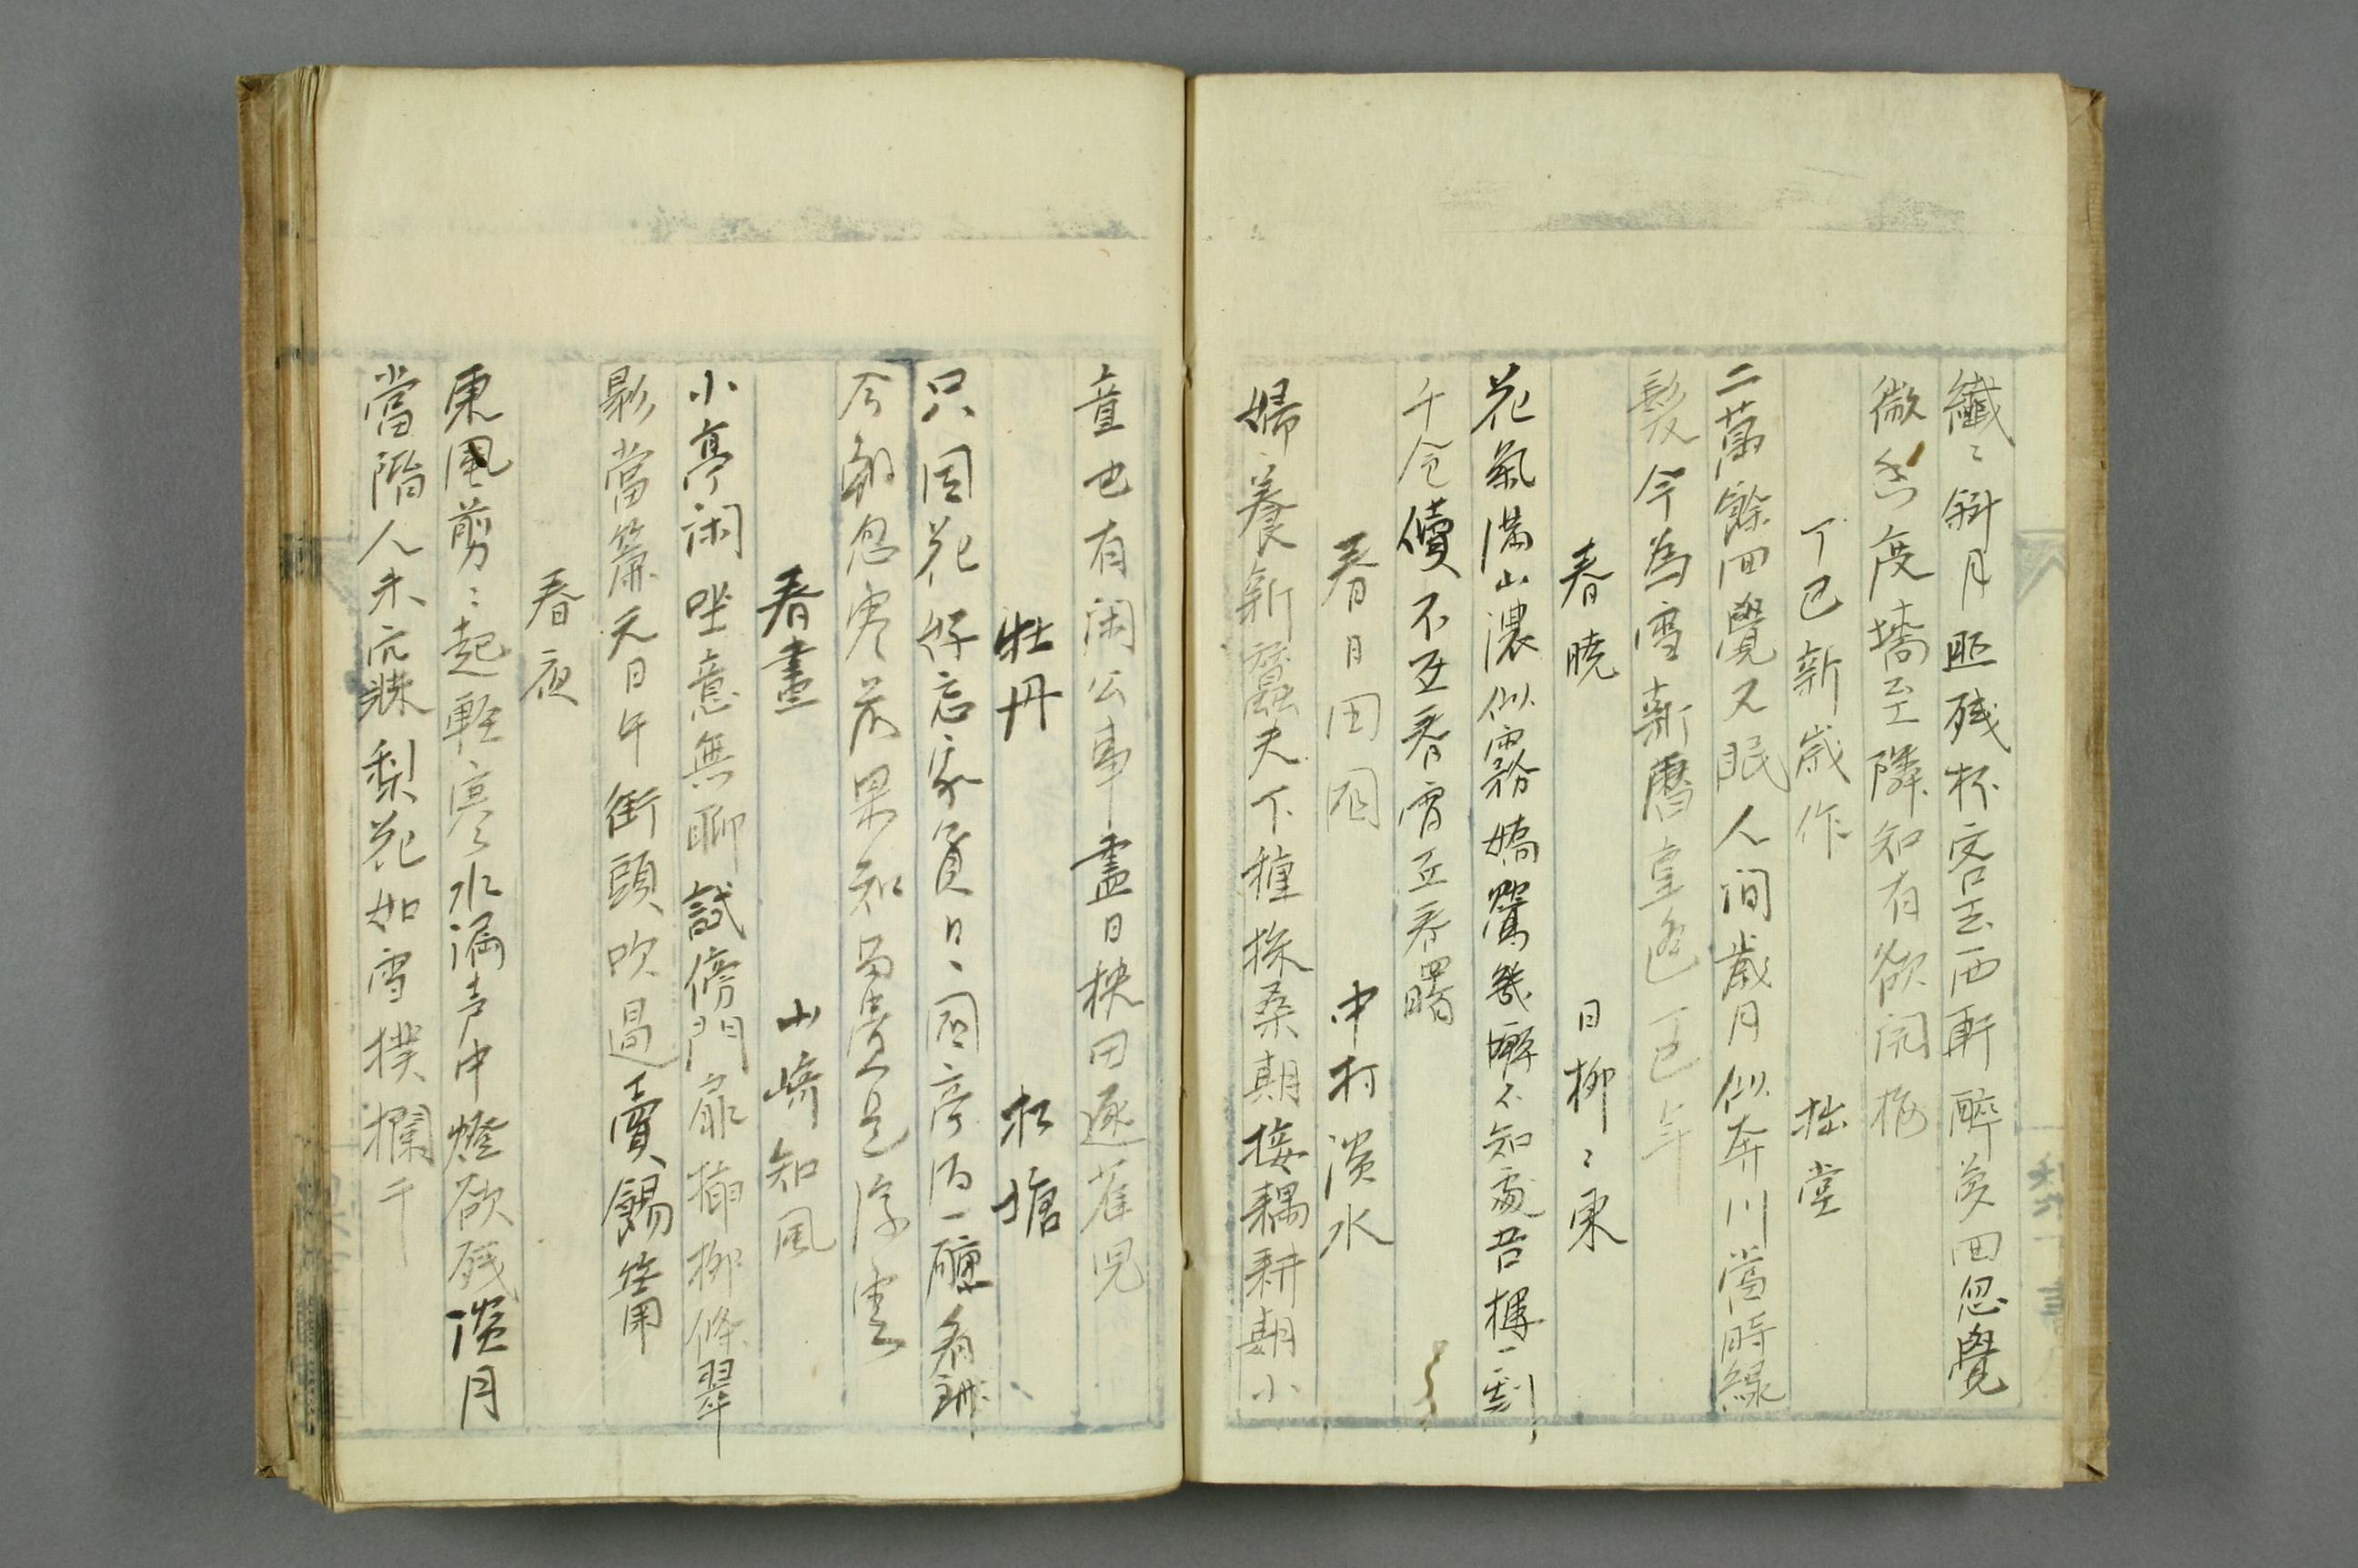 纖〻斜月照残杯客去西軒醉夢回忽覺
微香度墻至隣知有欲開梅
丁巳新歳作 拙堂
二萬餘回覺又眠人间歳月似奔川當時緑
髪今為雪新暦皇邉丁巳年
春暁 日柳〻東
花氣満山濃似霧嬌鶯幾囀不知處吾樓一刻
千仓價不在春宵在春曙
春日田園 中村淡水
婦養新蠶夫下種採桑期接耦耕期小
童也有闲公事盡日秧田逐雀児
牡丹 松塘
只因花好忘家貧日〻同
今朝忽寒 果知富貴是浮雲
春晝 山崎知風
小亭闲坐意無聊試傍門扉揷柳條翠
影當簷天日午街頭吹過賣餳簫
春夜
東風剪〻起軽寒水漏声中燈欲残淡月
當階人未寐梨花如雪撲欄干